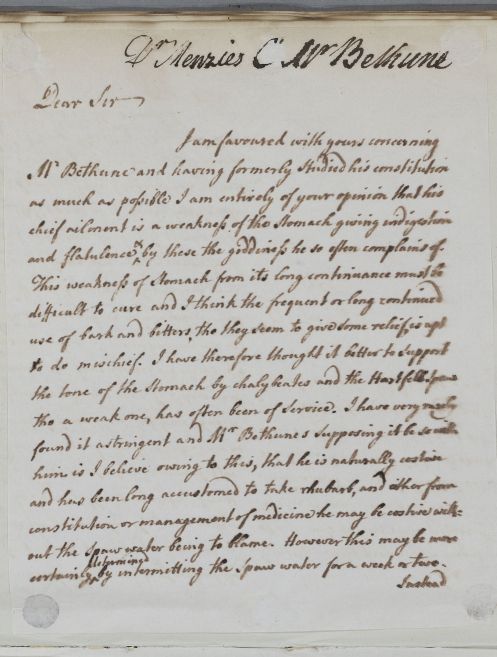 Dr Menzies Ct Mr Bethune
Dear Sir
I am favoured with yours concerning
Mr Bethune and having formerly studied his constitution
as much as possible I am entirely of your opinion that his
chief ailment is a weakness of the Stomach giving indigestion
and flatulence & by these the giddiness he so often complains of.
This weakness of Stomach from its long continuance must be
difficult to cure and I think the frequent or long continued
use of bark and bitters, tho they seem to give some relief, is apt
to do mischief. I have therefore thought it better to support
the tone of the Stomach by chalybeates and the Hartfell Spaw
tho a weak one, has often been of Service. I have very rarely
found it astringent and Mr Bethunes supposing it be so with
him is I believe owing to this, that he is naturally costive
and has been long accustomed to take rhubarb, and either from
constitution or management of medicine he may be costive with-
out the Spaw water being to blame. However this may be more
certainly determined by intermitting the Spaw water for a week or two.
Instead